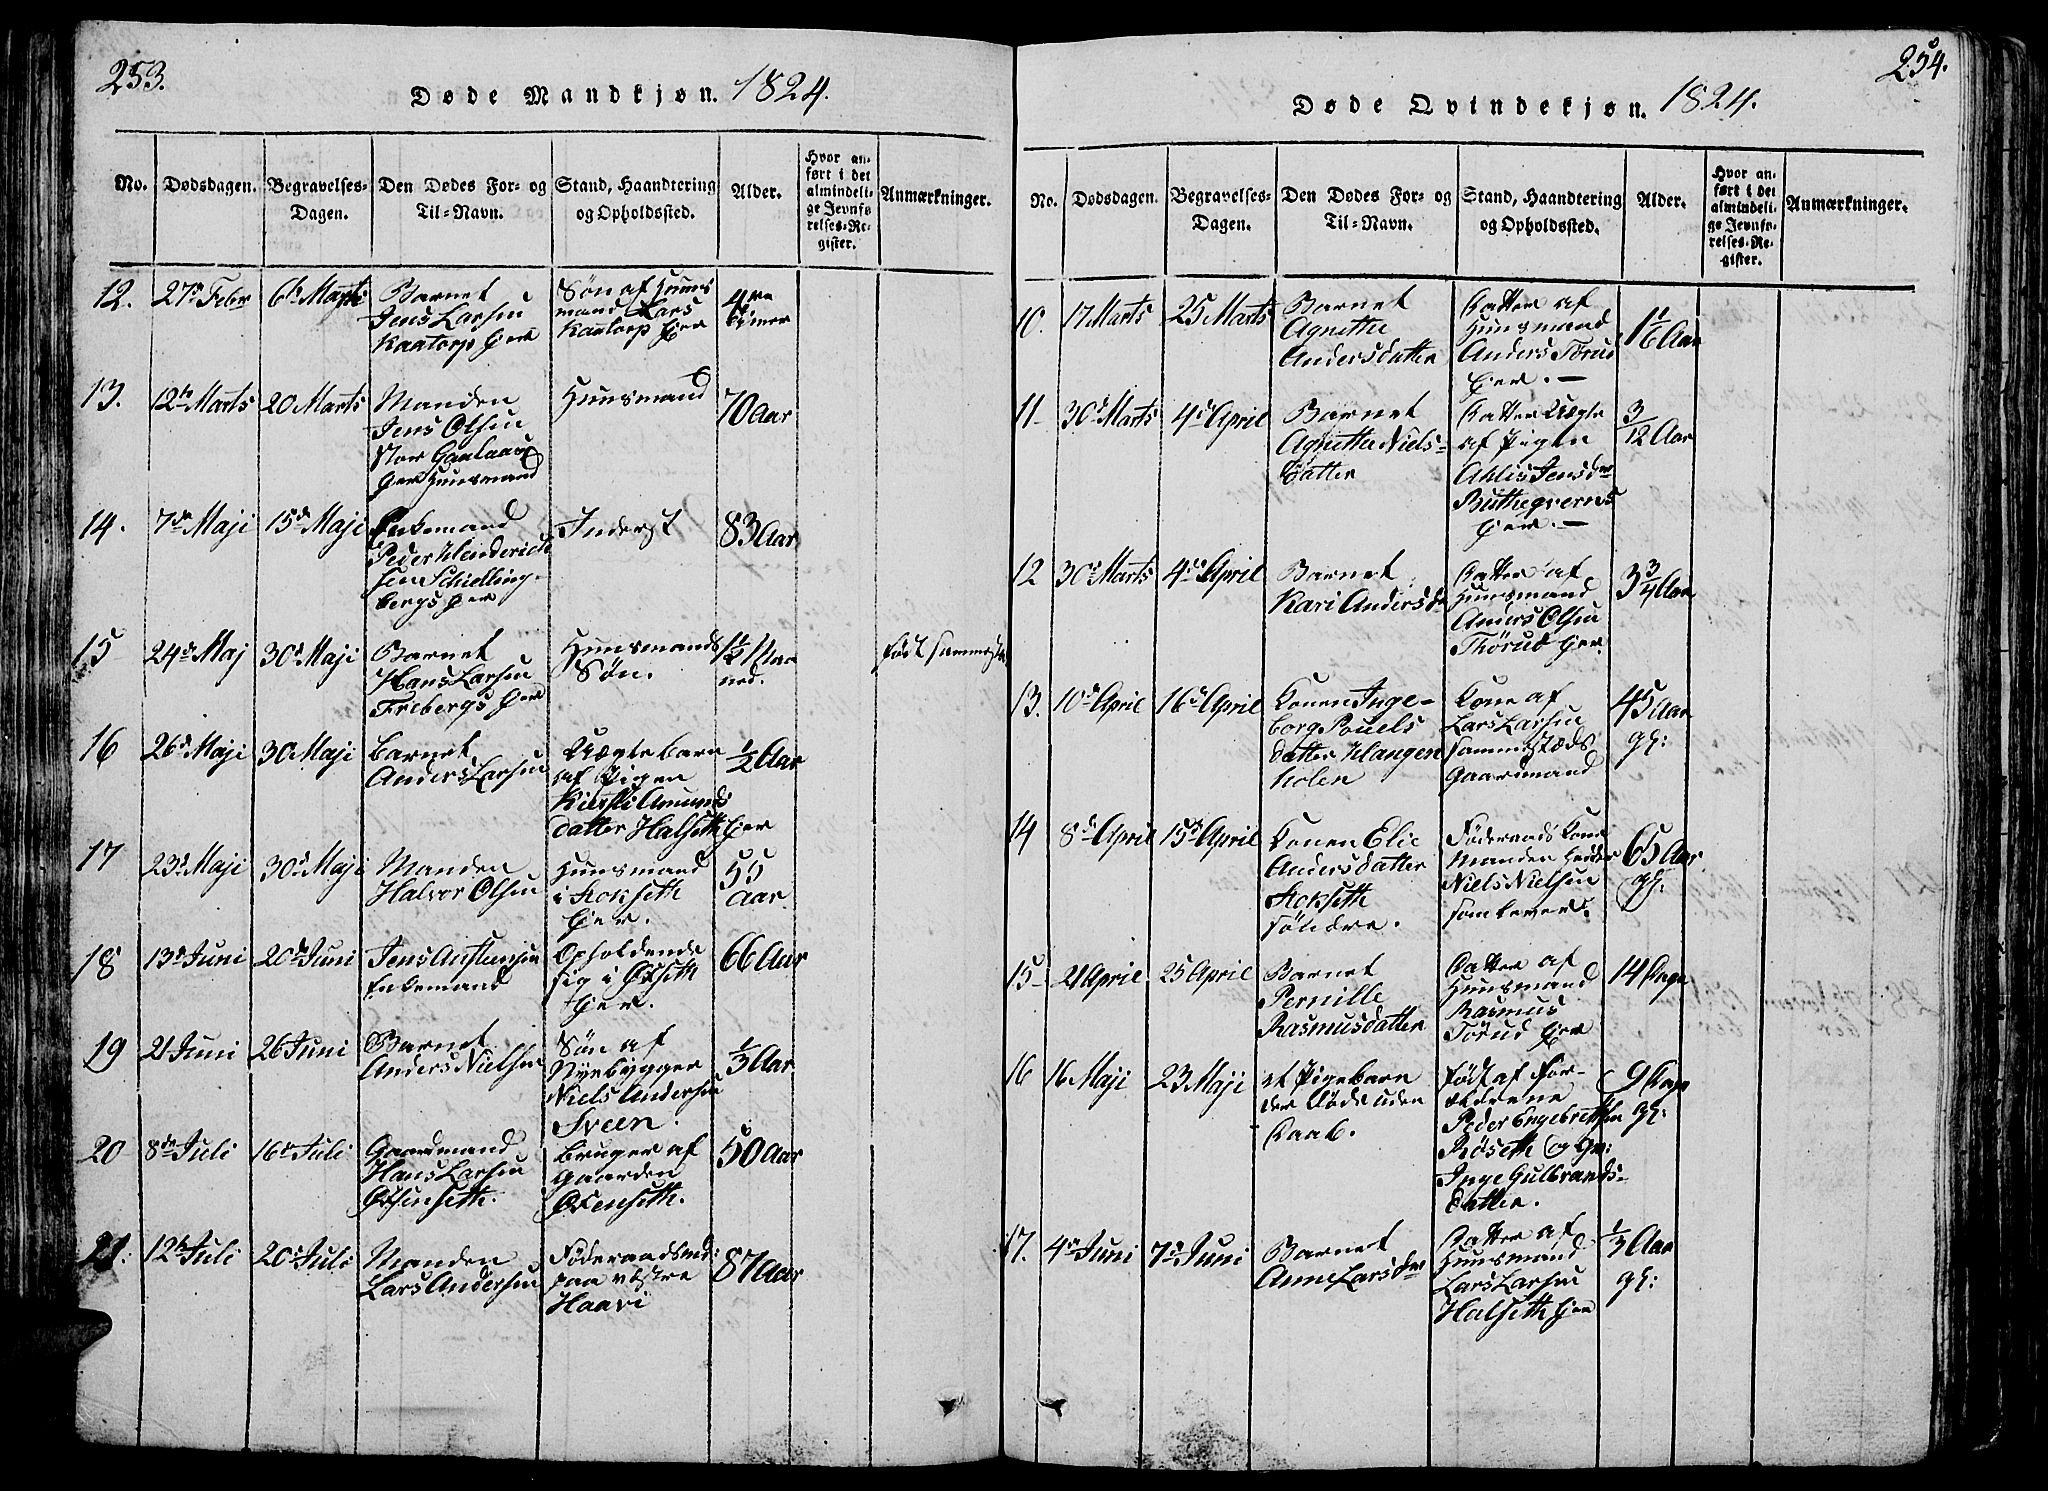 253.
Døde Mandkjøn. 1824.
No.
Dødsdagen.
Begravelses-
Dagen.
Den Dødes For- og
Til-Navn.
Stand, Haandtering
og Opholdssted.
Alder.
Hvor an-
ført i det
almindeli-
ge Jevnfø-
relses-Re-
gister.
Anmærkninger.
12. 27de Febr 6te Marts
Barnet
Jens Larsen
Kaatorp Eier
Søn af Huus
mand Lars
Kaatorp Eier
4re
13. 12te Marts 20 Marts
Manden
Jens Olsen
Stor
Eier Huusmand
Huusmand
70 Aar
14. 7de Maji 15de Maji
Enkemand
Peder Henderich
sen Schielling-
bergs Eier
Inderst
83 Aar
15 24de Maj 30de Maji
Barnet
Hans Larsen
Frebergs Eier
Huusmands
Søn.
født samme
16 26de Maji 30 Maji
Barnet
Anders Larsen
Uægte barn
af Pigen
Kiersti Amunds
datter Halseth Eier
1/2 Aar
17 23de Maji 30de Maji
Manden
Halvor Olsen
Huusmand
i Hokseth
Eier.
55
Aar
18 13de Juni 20de Juni
Jens Austensen
Enkemand
Opholdende
sig i Øxseth
Eier.
66 Aar
19 21 Juni 26 Juni
Barnet
Anders Nielsen
Søn af
Nyebygger
Niels Andersen
Sveen.
1/3 Aar
20 8de Juli 16de Juli
Gaardmand
Hans Larsen
Øxenseth.
Bruger af
Gaarden
Øxenseth.
50 Aar
21. 12te Juli 20de Juli
Manden
Lars Andersen
Føderaadsmd:
paa vestre
Haavi
87 Aar
254.
Døde Qvindekjøn. 1824.
No.
Dødsdagen.
Begravelses-
Dagen.
Den Dødes For- og
Til-Navn.
Stand, Haandtering
og Opholdssted.
Alder.
Hvor an-
ført i det
almindeli-
ge Jevnfø-
relses-Re-
gister.
Anmærkninger.
10. 17 Marts 25 Marts
Barnet
Agnethe
Andersdatter
Datter af
Huusmand
Anders Tørud
Eier. —
1 1/6 Aar
11 30de Marts 4de April
Barnet
Agnethe Niels-
datter
Datter Uægte
af Pigen
Ahlis Jensdr
Buthegvernes
Eier. —
3/12 Aar
12 30te Marts 4de April
Barnet
Kari Andersdr
Datter af
Huusmand
Anders Olsen
Thørud Eier.
3 3/4 Aar
13. 10de April 16de April
Konen Inge-
borg Pouels
datter Klangen
holen
Kone af
Lars Larsen
sammestæds
Gaardmand
45 Aar
gl:
14 8de April 15de April
Konen Elie
Andersdatter
Hokseth
søndre.
Føderaads Kone
Manden hedder
Niels Nielsen
som lever.
65 Aar
gl:
15 21 April 25 April
Barnet
Pernille
Rasmusdatter
Datter af
Huusmand
Rasmus
Tørud Eier
14 Dage
16 16 Maji 23 Maji
et Pigebarn
der døde uden
Daab.
født af For-
ældrene
Peder Engebretsen
Røseth og Gr:
Inge Gulbrands-
datter.
9 Dage
gl:
17. 4de Juni 7de Juni
Barnet
Anne Larsdr
Datter af
Huusmand
Lars Larsen
Halseth Eier
1/3 Aar
gl: